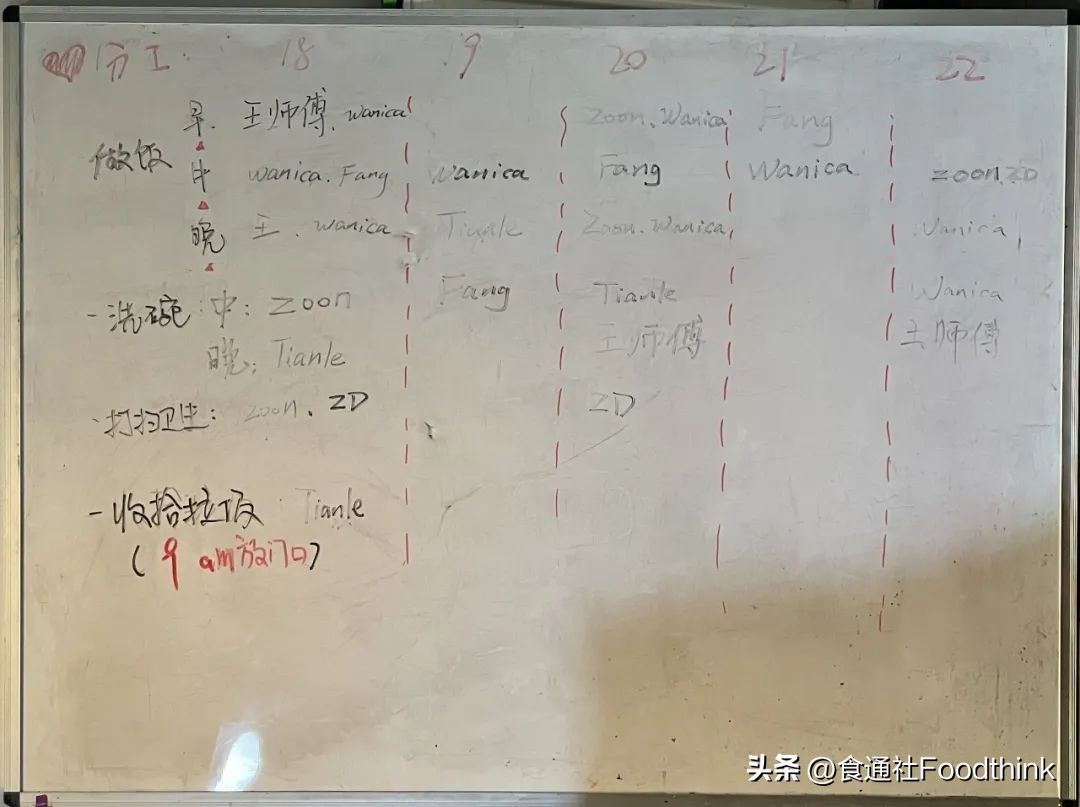 分工: 18 19 20 21 22
早. 王师傅. wanica Zoon. Wanica Fang
做饭 中 wanica. Fang Wanica Fang Wanica zoon. ZD
晚 王. wanica Tianle Zoon. Wanica, Wanica,
- 洗碗: 中: zoon Fang Tianle Wanica
晚: Tianle 王师傅 王师傅
· 打扫卫生: zoon. ZD ZD
- 收拾垃圾: Tianle
(9 am放门口)
头条 @食通社Foodthink